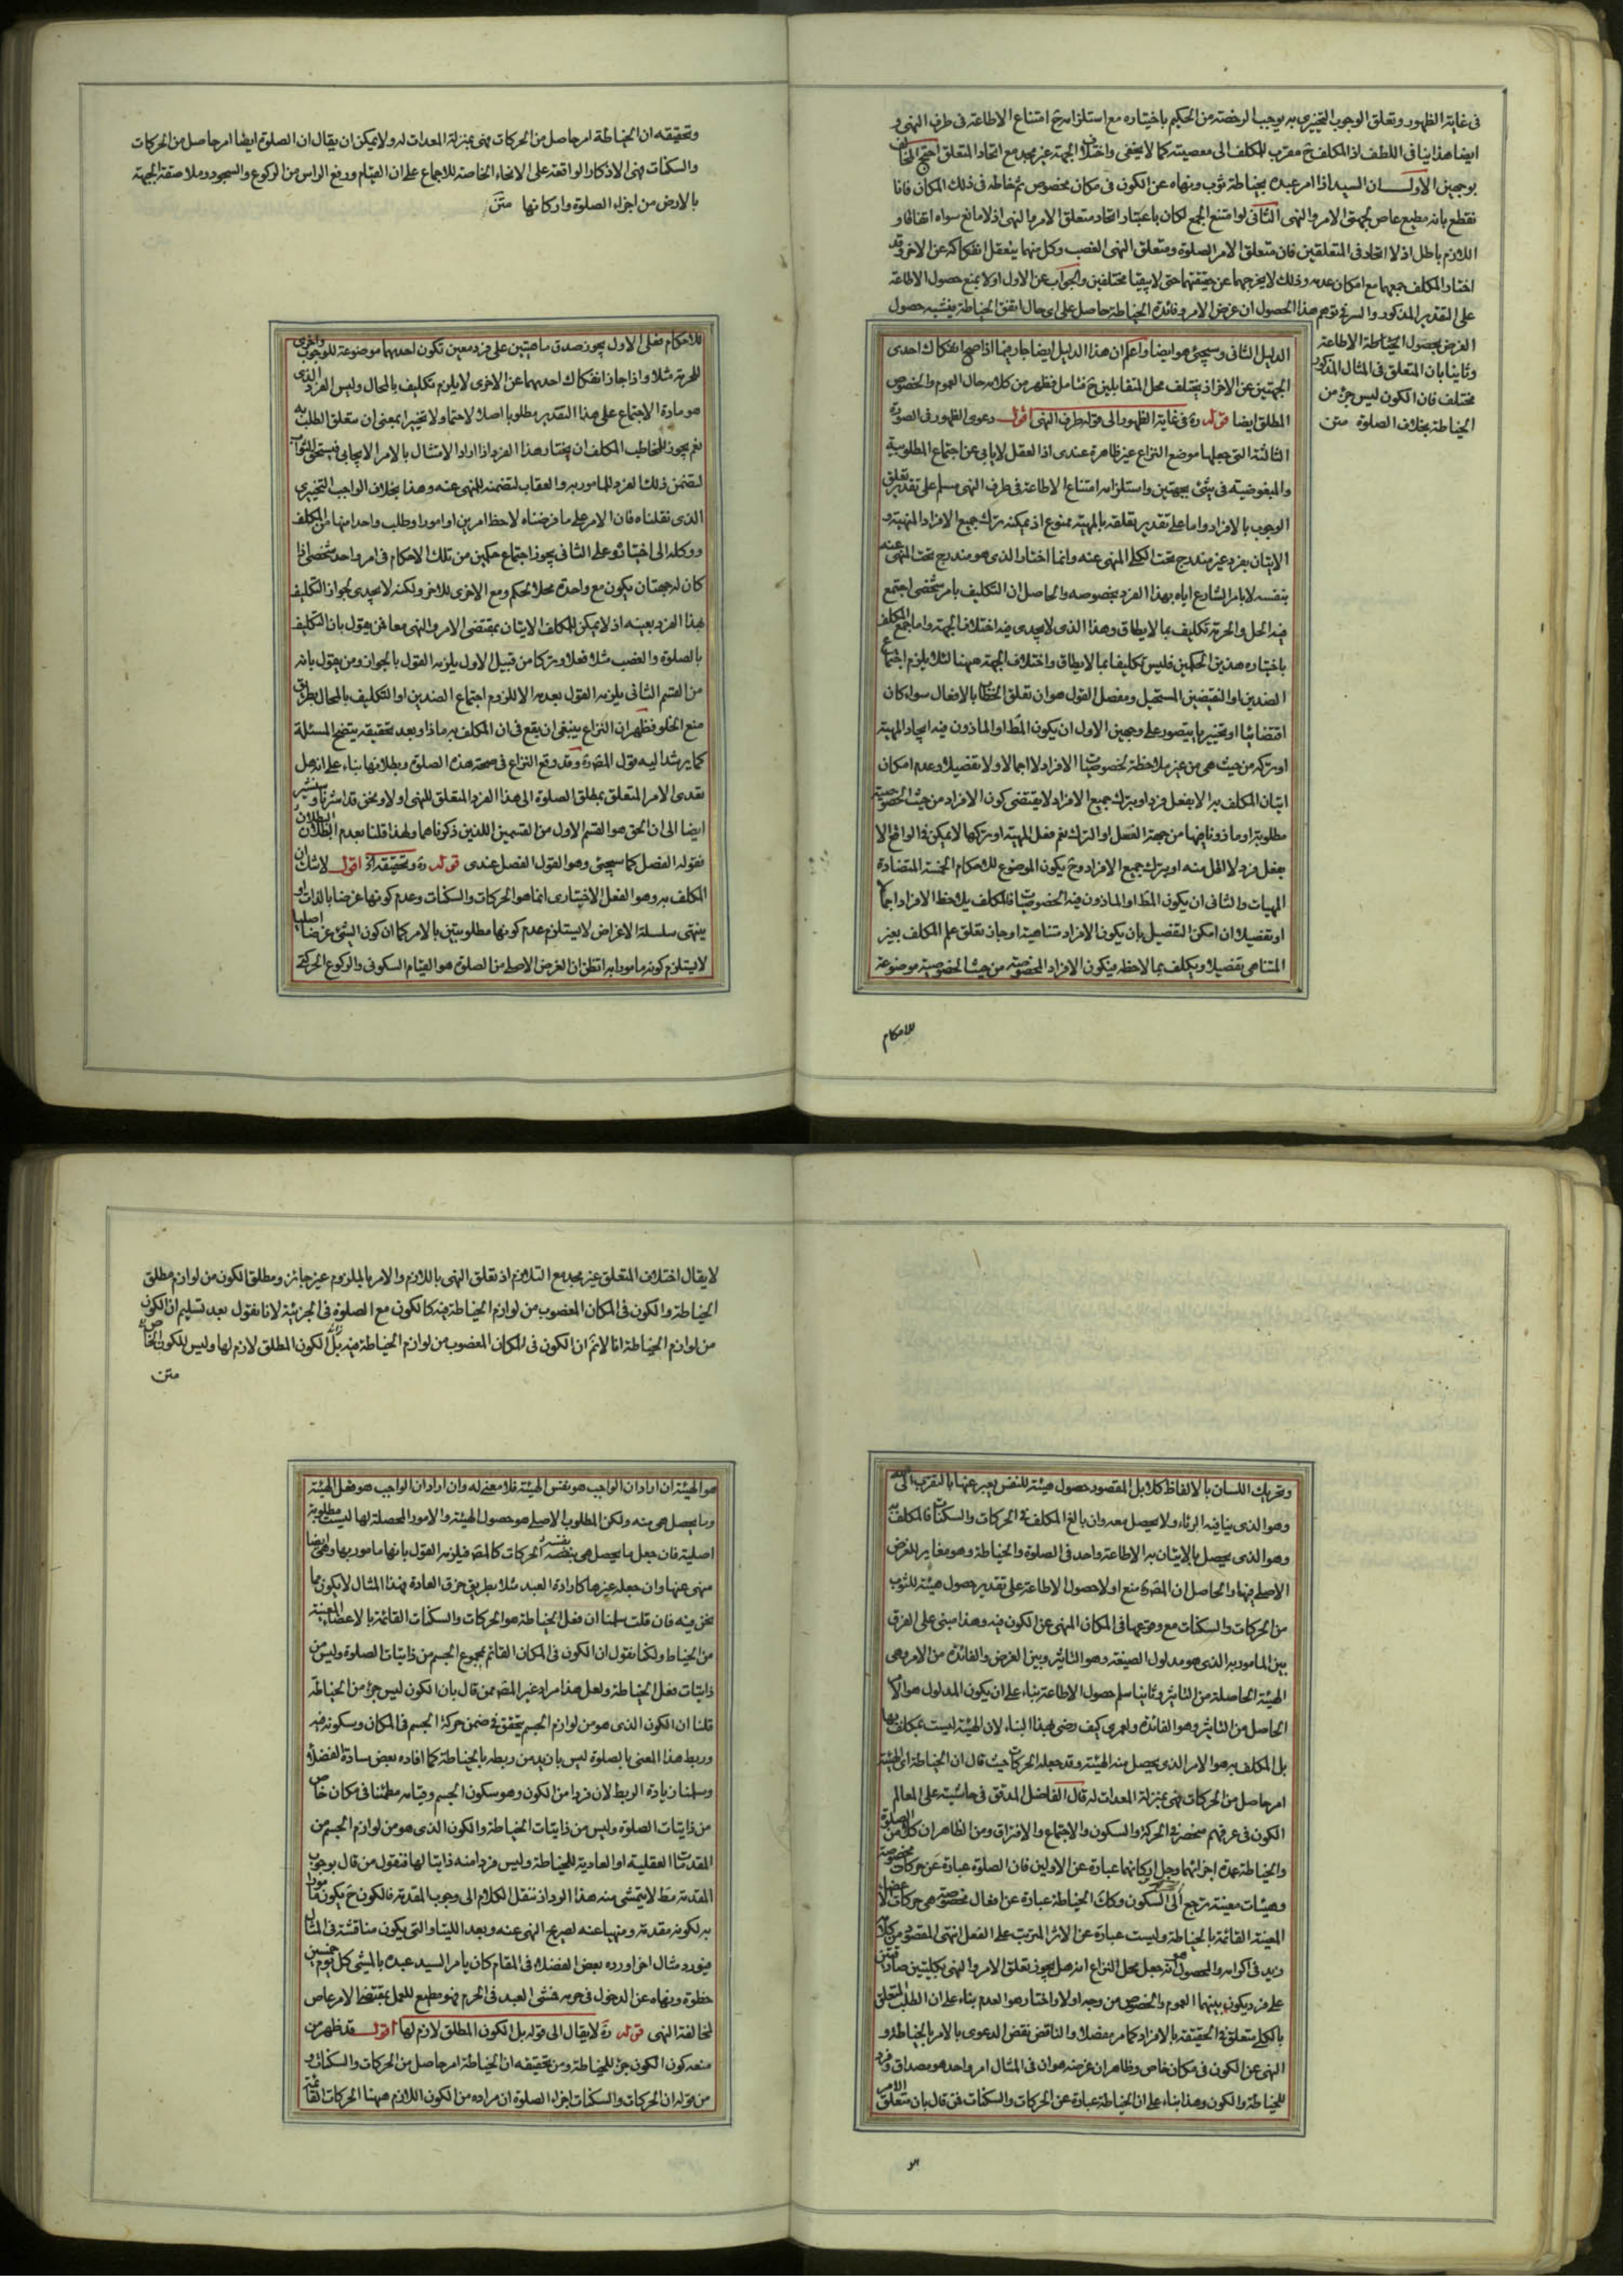 فى غاية الظهور وتعلق الوجوب التخييرى به يوجب الرخصة من الحكيم باختياره مع استلزامه ح امتناع الاطاعة فى طرف النهى و
ايضا هذا ينافى اللطف اذ المكلف ح مقرب للمكلف الى معصيته كما لا يخفى واختلاف الجهة غير مجد مع اتحاد المتعلق احتج المخالف
بوجهين الاول ان السيد اذا امر عبده بخياطة ثوب ونهاه عن الكون فى مكان مخصوص ثم خاطه فى ذلك المكان فانا
نقطع بانه مطيع عاص لجهتى الامر والنهى الثانى لو امتنع الجمع لكان باعتبار اتحاد متعلق الامر والنهى اذ لا مانع سواه اتفاقا و
اللازم باطل اذ لا اتحاد فى المتعلقين فان متعلق الامر الصلوة ومتعلق النهى الغصب وكل منهما يتعقل انفكاكه عن الاخر وقد
اختار المكلف جمعهما مع امكان عدمه وذلك لا يخرجهما عن حقيقتهما حتى لا يبقيا مختلفين والجواب عن الاول اولا بمنع حصول الاطاعة
على التقدير المذكور والسر فى توهم هذا الحصول ان غرض الامر وفائدة الخياطة حاصل على اى حال اتفق الخياطة فيشبه حصول
الغرض بحصول الخياطة الاطاعة
وثانيا بان المتعلق فى المثال المذكور
مختلف فان الكون ليس جزء من
الخياطة بخلاف الصلوة متن
الدليل الثانى وسيجئ هو ايضا واعلم ان هذا الدليل ايضا جار فيما اذا صح انفكاك احدى
الجهتين عن الاخرى اذ يختلف محل المتقابلين ح فتامل فظهر من كلامه حال العموم والخصوص
المطلق ايضا قوله ره فى غاية الظهور الى قوله طرف النهى اقول دعوى الظهور فى الصورة
الثالثة التى جعلها موضع النزاع غير ظاهرة عندى اذ العقل لا يابى عن اجتماع المطلوبية
والمبغوضية فى شئ بجهتين واستلزامه امتناع الاطاعة فى طرف النهى مسلم على تقدير تعلق
الوجوب بالافراد واما على تقدير تعلقه بالمهية ممنوع اذ يمكنه ترك جميع الافراد المنهية و
الاتيان بفرد غير مندرج تحت الكلى المنهى عنه وانما اختار الذى هو مندرج تحت المنهى عنه
بنفسه لا بامر الشارع اياه بهذا الفرد بخصوصه والحاصل ان التكليف بامر شخصى اجتمع
فيه الحل والحرمة تكليف بما لا يطاق وهذا الذى لا يجدى فيه اختلاف الجهة واما جمع المكلف
باختياره هذين الحكمين فليس تكليفا بما لا يطاق واختلاف الجهة ههنا لئلا يلزم اجتماع
الضدين او النقيضين المستحيل ومفصل القول هو ان تعلق الخطاب بالافعال سواء كان
اقتضائيا او تخييريا يتصور على وجهين الاول ان يكون المط او الماذون فيه ايجاد المهية
او تركه من حيث هى من غير ملاحظة لخصوصيات الافراد لا اجمالا ولا تفصيلا وعدم امكان
اتيان المكلف به الا بفعل فرد او بترك جميع الافراد لا يقتضى كون الافراد من حيث الخصوصية
مطلوبة او ماذونا فيها من جهة الفعل او الترك نعم فعل المهية او تركها لا يمكن فى الواقع الا
بفعل فرد لا اقل منه او بترك جميع الافراد وح يكون الموضوع للاحكام الخمسة المتضادة
المهيات والثانى ان يكون المط او الماذون فيه الخصوصيات فالمكلف يلاحظ الافراد اجمالا
او تفصيلا ان امكن التفصيل بان يكون الافراد متناهية او جاز تعلق علم المكلف بغير
المتناهى تفصيلا ويكلف بما لاحظه فيكون الافراد المخصوصة من حيث الخصوصية موضوعة
للاحكام
وتحقيقه ان الخياطة امر حاصل من الحركات فهى بمنزلة المعدات له ولا يمكن ان يقال ان الصلوة ايضا امر حاصل من الحركات
والسكنات فهى الاذكار الواقعة على الانحاء الخاصة للاجماع على ان القيام ورفع الراس من الركوع والسجود وملاصقة الجبهة
بالارض من اجزاء الصلوة واركانها متن
للاحكام فعلى الاول يجوز صدق ماهيتين على فرد معين تكون احديهما موضوعة للوجوب والاخرى
للحرمة مثلا واذا جاز انفكاك احديهما عن الاخرى لا يلزم تكليف بالمحال وليس الفرد الذى
هو مادة الاجتماع على هذا التقدير مطلوبا اصلا لا حتما ولا تخييرا بمعنى ان متعلق الطلب به
نعم يجوز للمخاطب المكلف ان يختار هذا الفرد اذا اراد الامتثال بالامر الايجابى فيستحق الثواب
لتضمن ذلك الفرد للمامور به والعقاب لتضمنه للمنهى عنه وهذا بخلاف الواجب التخييرى
الذى نقلناه فان الامر على ما فرضناه لاحظ امرين او امورا وطلب واحدا منها من المكلف
ووكله الى اختياره وعلى الثانى يجوز اجتماع حكمين من تلك الاحكام فى امر واحد شخصى اذا
كان له جهتان يكون مع واحدة محلا لحكم ومع الاخرى للاخر ولكنه لا يجدى لجواز التكليف
بهذا الفرد بعينه اذ لا يمكن للمكلف الاتيان بمقتضى الامر والنهى معا فمن يقول بان التكليف
بالصلوة والغصب مثلا فعلا وتركا من قبيل الاول يلزمه القول بالجواز ومن يقول بانه
من القسم الثانى يلزمه القول بعدمه والا للزوم اجتماع الضدين او التكليف بالمحال بطريق
منع الخلو فظهر ان النزاع ينبغى ان يقع فى ان المكلف به ماذا وبعد تحقيقه يتضح المسئلة
كما يرشد اليه قول المص ره وقد وقع النزاع فى صحة هذه الصلوة وبطلانها بناء على انه هل
تعدى الامر المتعلق بمطلق الصلوة الى هذا الفرد المتعلق للنهى او لا ونحن قد اشرنا وسنشير
ايضا الى ان الحق هو القسم الاول من القسمين اللذين ذكرناهما ولهذا قلنا بعدم البطلان
فقوله الفصل كما سيجئ وهو القول الفصل عندى قوله ره وتحقيقه اه اقول لا شك ان
المكلف به وهو الفعل الاختيارى انما هو الحركات والسكنات وعدم كونها غرضا بالذات او
ينتهى سلسلة الاغراض لا يستلزم عدم كونها مطلوبين بالامر كما ان كون الشئ غرضا اصليا
لا يستلزم كونه مامورا به اتظن ان الغرض الاصلى من الصلوة هو القيام السكونى والركوع الحركتى
وتحريك اللسان بالالفاظ كلا بل المقصود حصول هيئة للنفس يعبر عنها بالتقرب الى الله
وهو الذى ينافيه الرئاء ولا يحصل معه وان بالغ المكلف فى الحركات والسكنات فالمكلف به
وهو الذى يحصل بالاتيان به الاطاعة واحد فى الصلوة والخياطة وهو مغاير للغرض
الاصلى فيها والحاصل ان المص ره منع اولا حصول الاطاعة على تقدير حصول هيئة للثوب
من الحركات والسكنات مع وقوعها فى المكان المنهى عن الكون فيه وهذا مبنى على الفرق
بين المامور به الذى هو مدلول الصيغة وهو التاثير وبين الغرض والفائدة من الامر وهى
الهيئة الحاصلة من التاثير وثانيا سلم حصول الاطاعة بناء على ان يكون المدلول هو الامر
الحاصل من التاثير وهو الفائدة ولعمرى كيف رضى بهذا البناء لان الهيئة ليست بمكلف بها
بل المكلف به هو الامر الذى يحصل منه الهيئة وقد جعله الحركات حيث قال ان الخياطة اى الهيئة
امر حاصل من الحركات فهى بمنزلة المعدات له قال الفاضل المدقق فى حاشيته على المعالم
الكون فى عرفهم منحصر فى الحركة والسكون والاجتماع والافتراق ومن الظاهر ان كلا من الصلوة
والخياطة عمدة اجزائهما وجل اركانهما عبارة عن الاولين فان الصلوة عبارة عن حركات مخصوصة
وهيئات معينة ترجع الى السكون وكك الخياطة عبارة عن افعال مخصوصة هى حركات الاعضاء
المعينة القائمة بالخياطة وليست عبارة عن الاثر المترتب على الفعل انتهى المقصود من كلامه
على فرد ويكون بينهما العموم والخصوص من وجه اولا واختار هو العدم بناء على ان الطلب المتعلق
بالكلى متعلق فى الحقيقة بالافراد كما مر مفصلا والناقض نقض الدعوى بالامر بالخياطة و
النهى عن الكون فى مكان خاص وظاهر ان غرضه هو ان فى المثال امر واحد هو مصداق وفرد
للخياطة والكون وهذا بناء على ان الخياطة عبارة عن الحركات والسكنات فمن قال بان متعلق الامر
هو
لا يقال اختلاف المتعلق غير مجد مع التلازم اذ تعلق النهى باللازم والامر بالملزوم غير جائز ومطلق الكون من لوازم مطلق
الخياطة والكون فى المكان المغصوب من لوازم الخياطة فيه كالكون مع الصلوة فى الجزئية لانا نقول بعد تسليم ان الكون
من لوازم الخياطة انا لا نم ان الكون فى المكان المغصوب من لوازم الخياطة فيه بل الكون المطلق لازم لها وليس للكون الخاص
متن
هو الهيئة ان اراد ان الواجب هو نفس الهيئة فلا معنى له وان اراد ان الواجب هو فعل الهيئة
وما يحصل هى منه ولكن المطلوب الاصلى هو حصول الهيئة والامور المحصلة لها ليست مطلوبة
اصلية فان جعل ما يحصل هى بنفسه الحركات كالمص فيلزمه القول بانها مامور بها وهى ايضا
منهى عنها وان جعله غيرها كارادة العبد مثلا بطريق خرق العادة فهذا المثال لا يكون مما
نحن فيه فان قلت سلمنا ان فعل الخياطة هو الحركات والسكنات القائمة بالاعضاء المعينة
من الخياط ولكنا نقول ان الكون فى المكان القائم بمجموع الجسم من ذاتيات الصلوة وليس من
ذاتيات فعل الخياطة ولعل هذا مراد غير المص ممن قال بان الكون ليس جزء من الخياطة
قلنا ان الكون الذى هو من لوازم الجسم يتحقق فى ضمن حركة الجسم فى المكان وسكونه فيه
وربط هذا المعنى بالصلوة ليس بازيد من ربطه بالخياطة كما افاده بعض سادة الفضلاء
وسلمنا زيادة الربط لان فردا من الكون وهو سكون الجسم وقيامه مطمئنا فى مكان خاص
من ذاتيات الصلوة وليس من ذاتيات الخياطة والكون الذى هو من لوازم الجسم من
المقدمات العقلية او العادية للخياطة وليس فردا منه ذاتيا لها فنقول من قال بوجوب
المقدمة مط لا يتمشى منه هذا الورد اذ ننقل الكلام الى وجوب المقدمة فالكون ح يكون مامورا
به لكونه مقدمة ومنهيا عنه لصريح النهى عنه وبعد اللتيا والتى يكون مناقشة فى المثال
فيورد مثال اخر اورده بعض الفضلاء فى المقام كان يامر السيد عبده بالمشى كل يوم خمسين
خطوة وينهاه عن الدخول فى حرمه فمشى العبد فى الحرم فهو مطيع للعمل بمقتضى الامر عاص
لمخالفة النهى قوله ره لا يقال الى قوله بل الكون المطلق لازم لها اقول قد ظهر من
منعه كون الكون جزء للخياطة ومن تحقيقه ان الخياطة امر حاصل من الحركات والسكنات و
من قوله ان الحركات والسكنات اجزاء الصلوة ان مراده من الكون اللازم ههنا الحركات القائمة